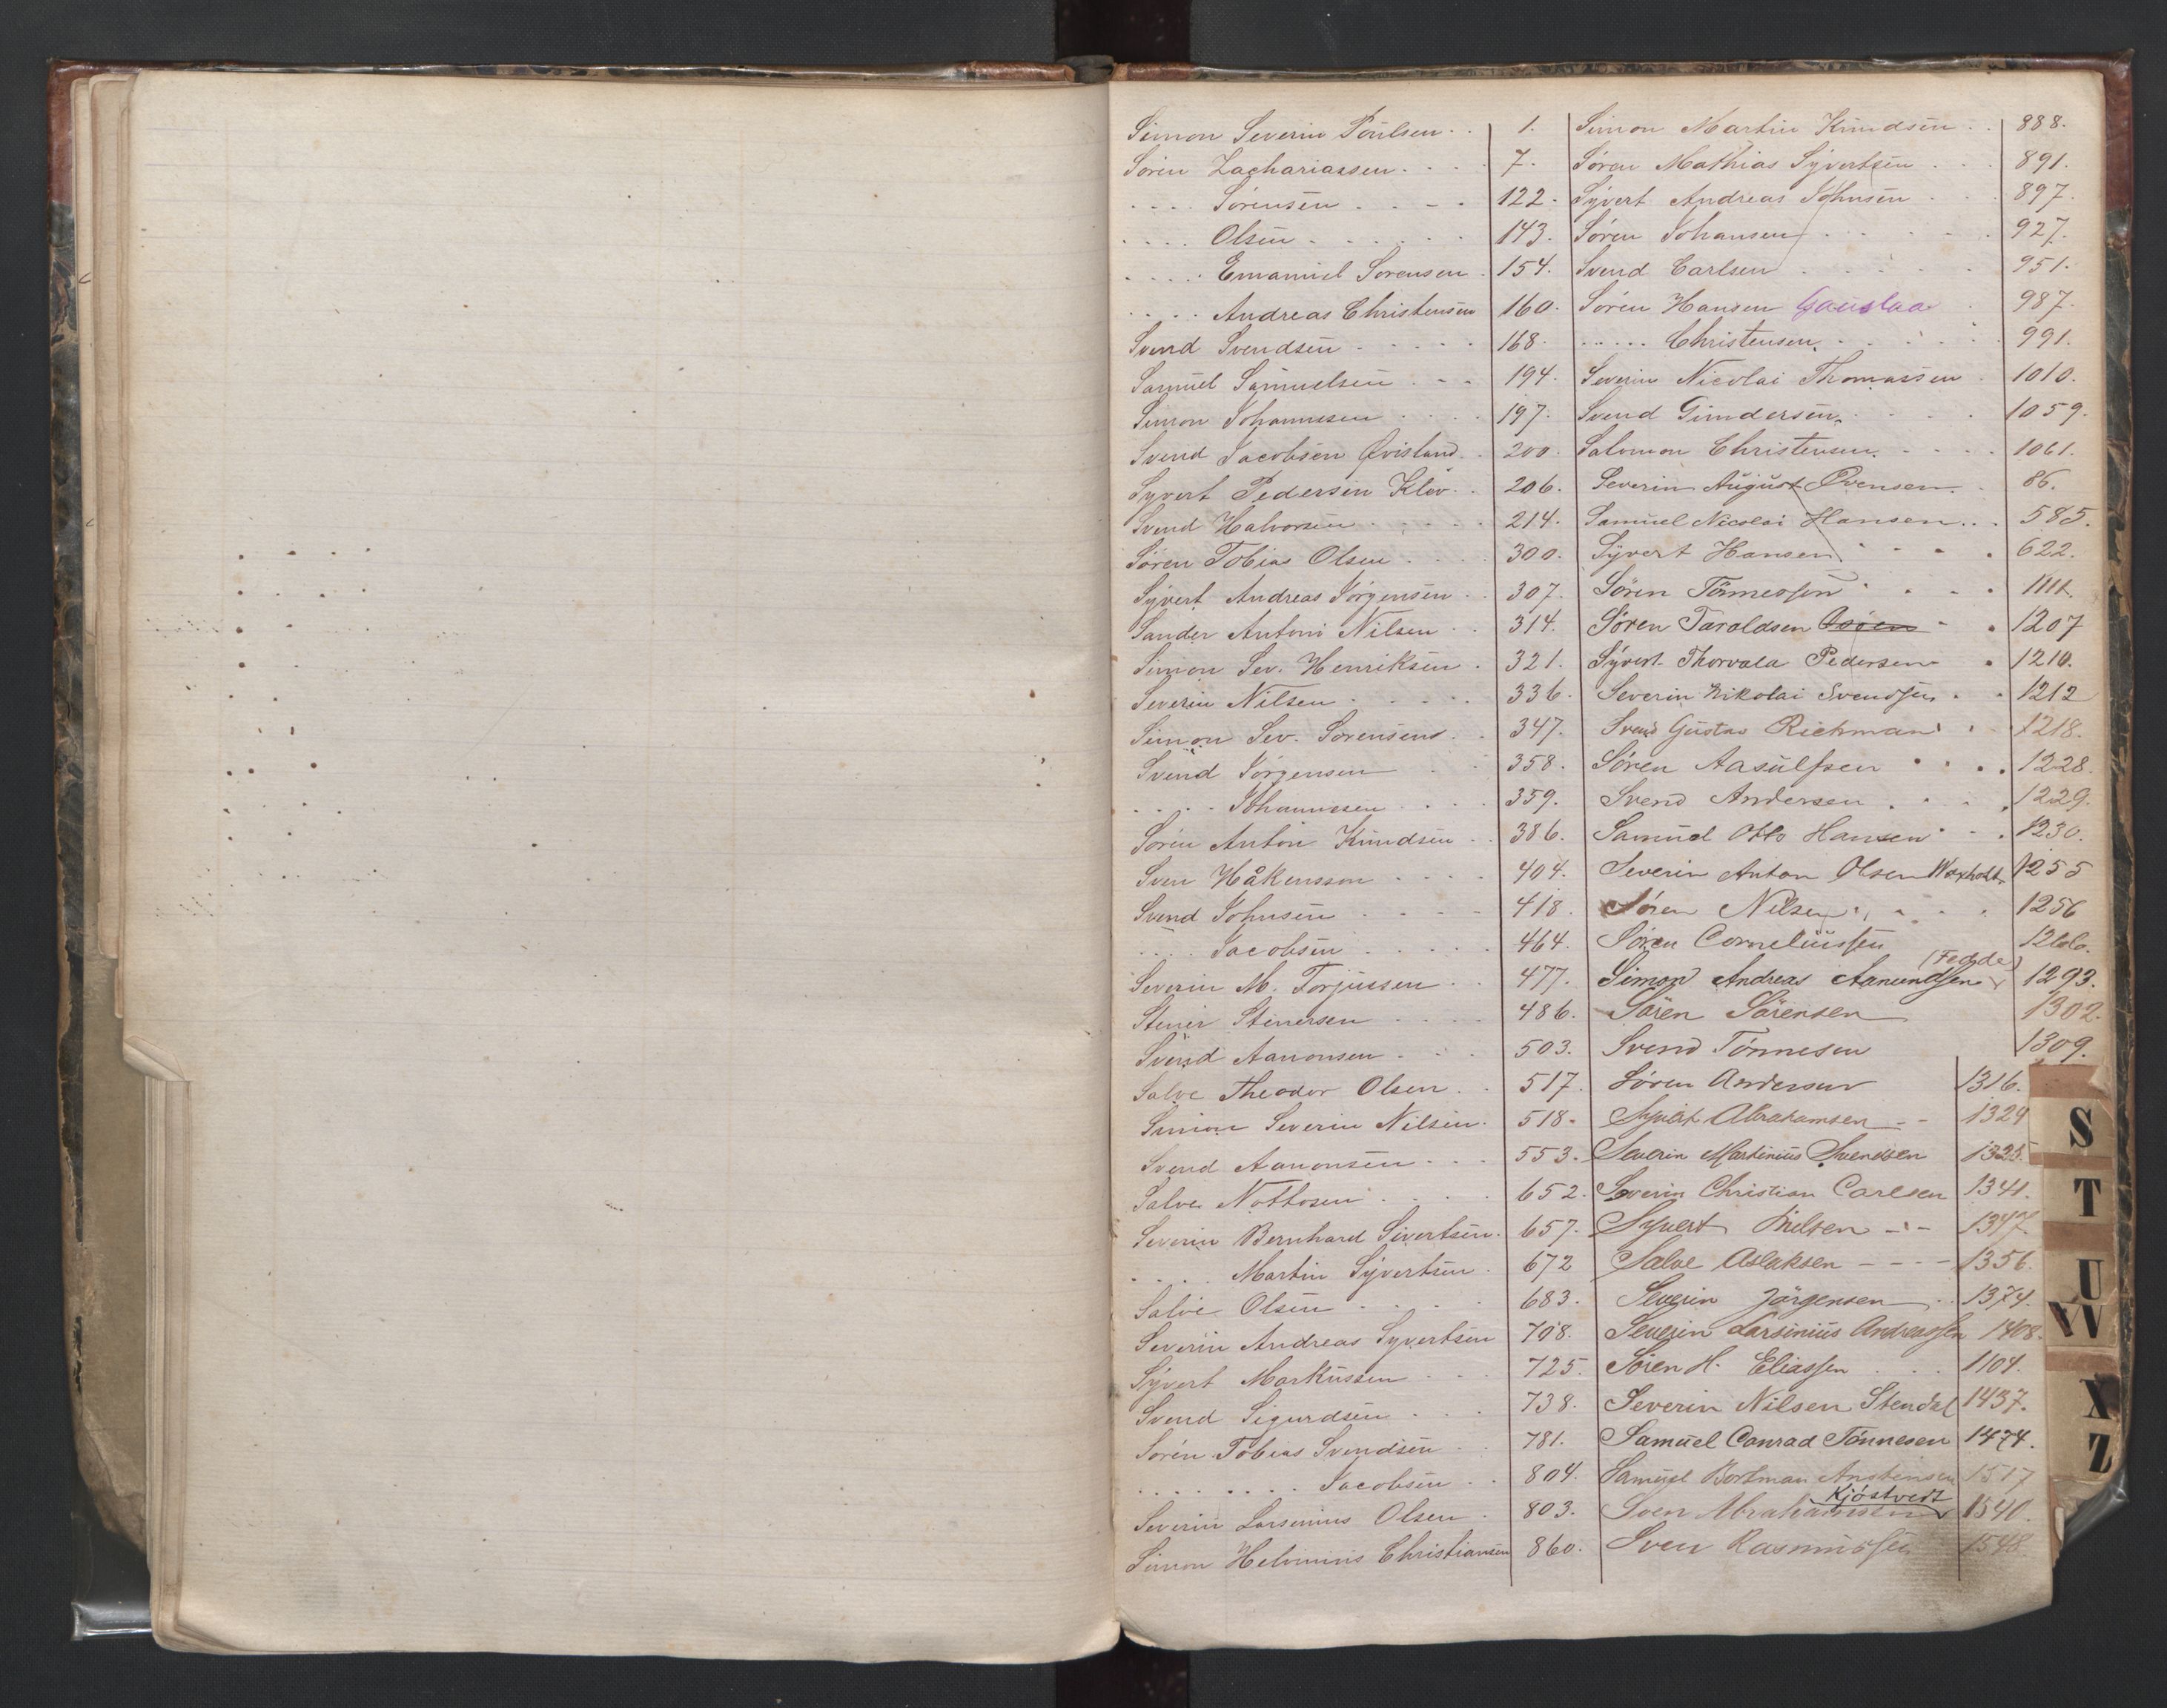 Simon Severin Poulsen . . 1.
Søren Zachariassen . . . 7.
. . . . Sørensen . . . . 122.
. . . . Olsen . . . . . 143.
. . . . Emanuel Sørensen . 154.
. . . . Andreas Christensen 160.
Svend Svendsen . . . . . 168.
Samuel Samuelsen . . . 194.
Simon Johannesen . . . . 197.
Svend Jacobsen Qvisland . 200.
Syvert Pedersen Kløv . . 206.
Svend Halvorsen . . . . . 214.
Søren Tobias Olsen . . . . 300.
Syvert Andreas Jørgensen . . 307.
Sander Antoni Nilsen . . 314.
Simon Sev. Henriksen . 321.
Severin Nilsen . . . . . 336.
Simon Sev. Sørensens . . 347.
Svend Jørgensen . . 358.
. . . . Johannesen . . . . 359.
Søren Anton Knudsen . . 386.
Sven Håkensson . . . . 404.
Svend Johnsen . . . . 418.
. . . . Jacobsen . . . . . 464.
Severin M. Torjussen . . 477.
Stener Stenersen . . . . 486.
Svend Aanonsen . . . 503.
Salve Theodor Olsen . . 517.
Simon Severin Nilsen . 518.
Svend Aanonsen . . . 553.
Salve Nottosen . . . . 652.
Severin Bernhard Sivertsen . 657.
. . . . Martin Syvertsen . 672
Salve Olsen . . . . 683.
Severin Andreas Syvertsen 708.
Syvert Markussen . . . 725.
Svend Sigurdsen . . . 738.
Søren Tobias Svendsen . . 781.
. . . . . . . . Jacobsen . . 804.
Severin Larsenius Olsen . 803.
Simon Helvinius Christiansen 860.
Simon Martin Knudsen . . 888.
Søren Mathias Syvertsen . . . 891.
Syvert Andreas Johnsen . . . 897.
Søren Johansen . . . . . 927.
Svend Carlsen . . . . . 951.
Søren Hansen Gauslaa . 987.
. . . . . Christensen . . . . . 991.
Severin Nicolai Thomassen . 1010.
Svend Gundersen . . . . 1059.
Salomon Christensen . . . . 1061.
Severin August Evensen . . 86.
Samuel Nicolai Hansen . . . 585.
Syvert Hansen . . . . 622.
Søren Tønnessen . . . . 1111.
Søren Taraldsen . . 1207
Syvert Thorvald Pedersen . 1210.
Severin Nikolai Svendsen . . 1212
Svend Gustav Richman . . 1218.
Søren Aasulfsen . . . . 1228.
Svend Andersen . . . . 1229.
Samuel Otto Hansen . . . 1230.
Severin Anton Olsen Waxholt 1255
Søren Nilsen . . . . 1256
Søren Corneliussen 1266.
(Fedde)
Simon Andreas Aanundsen 1293.
Søren Sørensen 1302.
Svend Tønnesen 1309.
Søren Andersen 1316.
Syvert Abrahamsen - - 1324
Severin Martinius Svendsen 1325.
Severin Christian Carlsen 1341.
Syvert Nielsen - - 1347.
Salve Aslaksen - - - - 1356.
Severin Jørgensen . . 1374.
Severin Larsinius Andreassen 1408.
Søren H. Eliassen . . . 1104.
Severin Nilsen Stendal 1437.
Samuel Conrad Tönnesen 1474.
Samuel Bortman 1517
Kjöstvedt
Sven Abrahamsen 1540.
Sven Rasmussen 1548
S
T
U
VW
X
Z